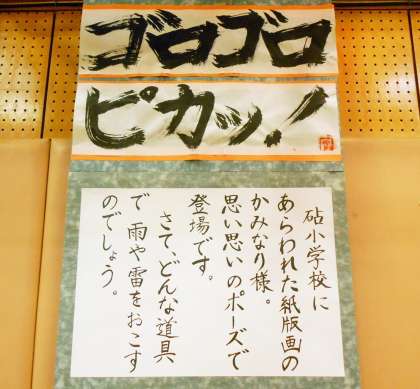 ゴロゴロ
ピカッ!
砧小学校に
あらわれた紙版画の
かみなり様。
思い思いのポーズで
登場です。
さて、どんな道具
で雨や雷をおこす
のでしょう。